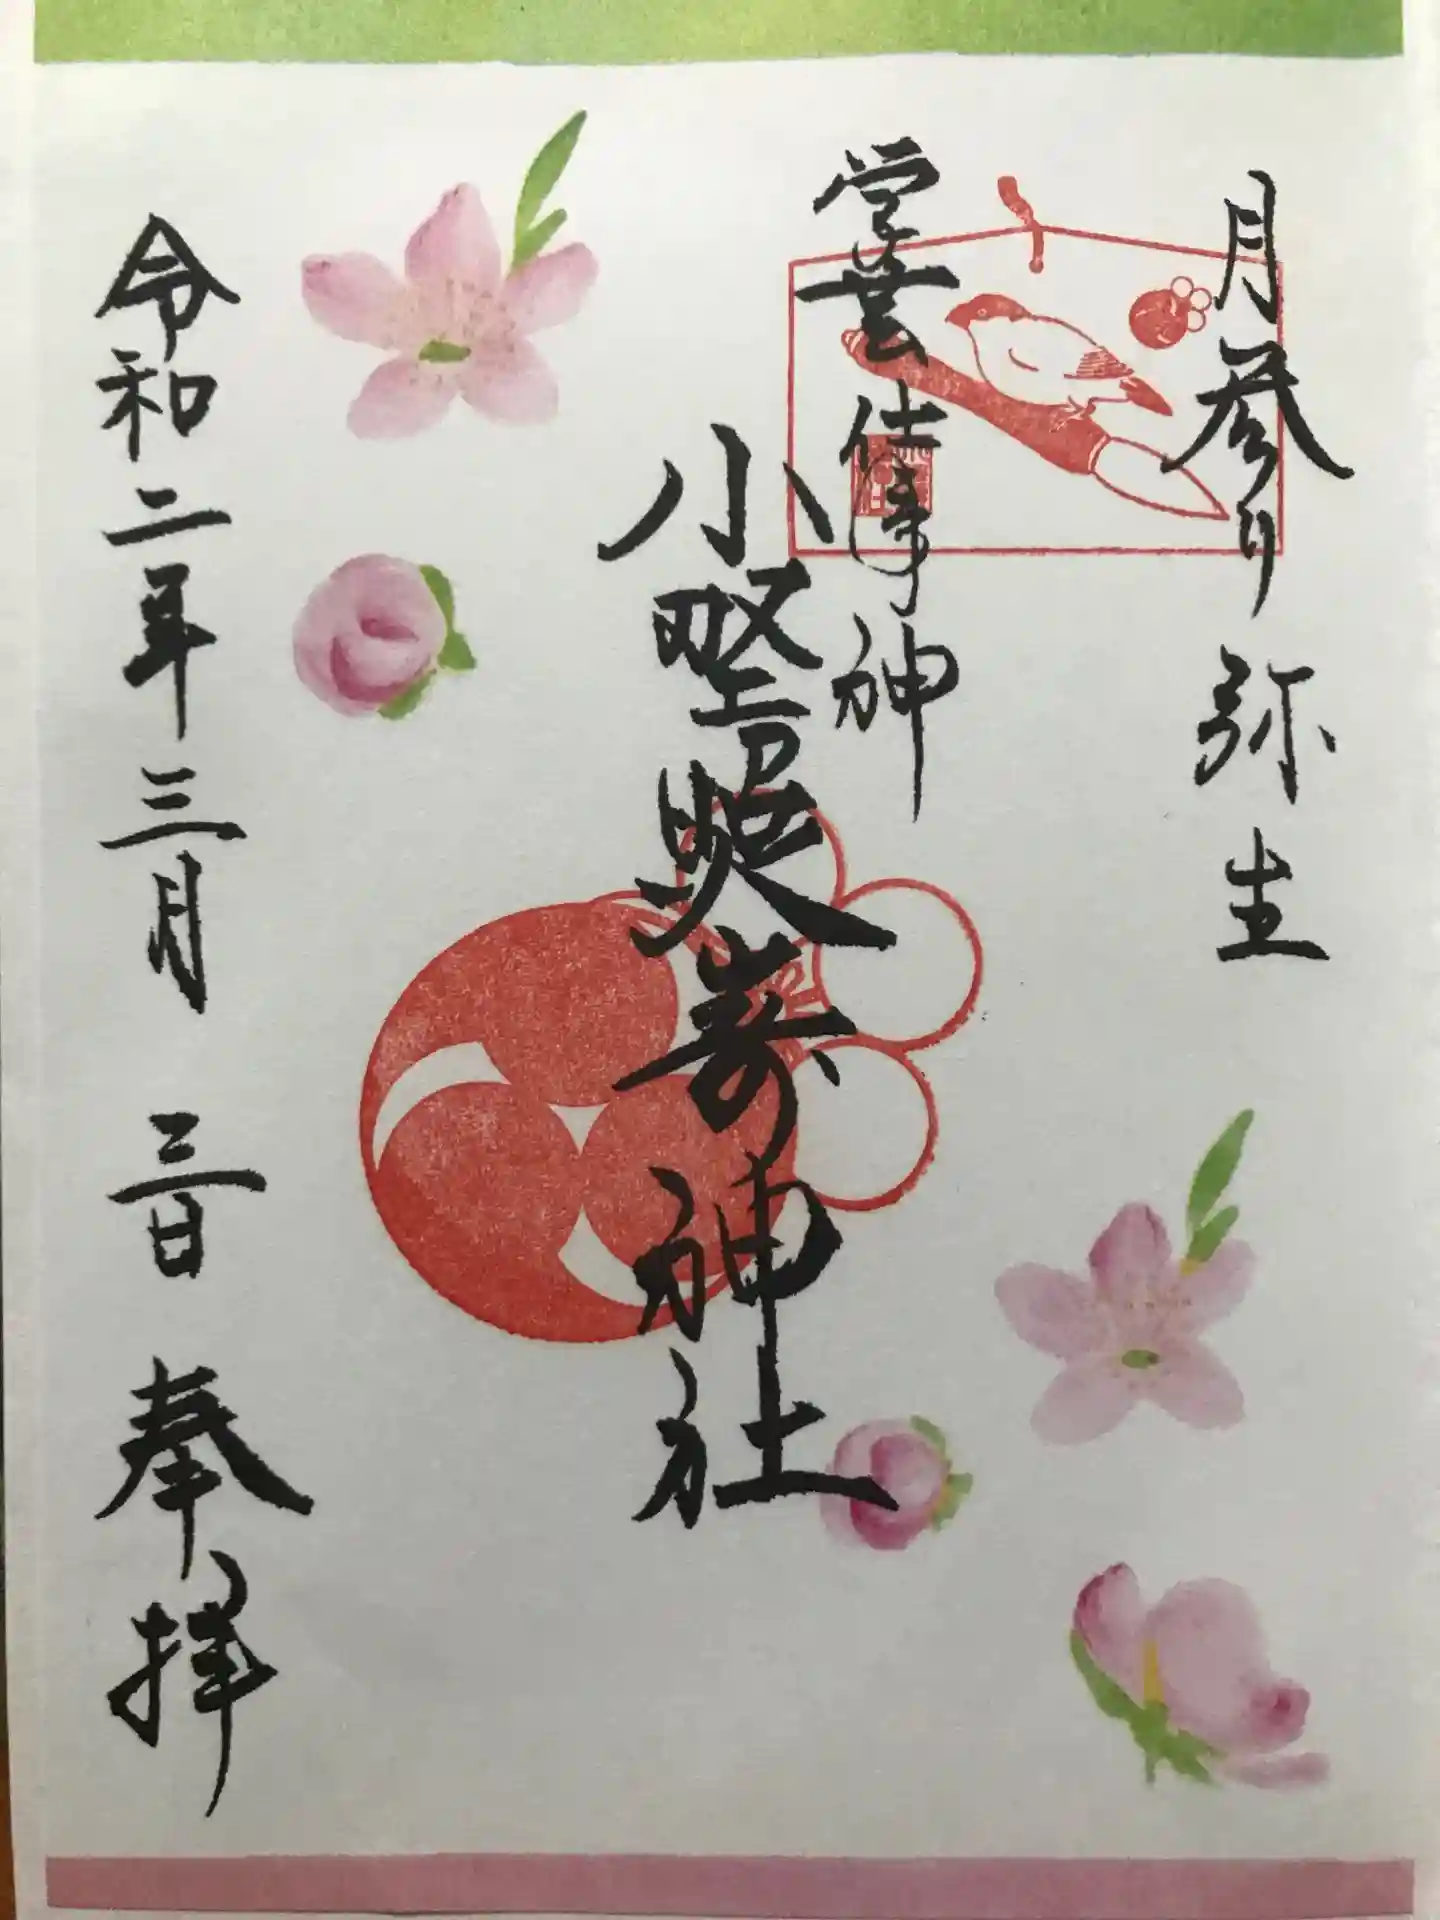 月参り 弥生
学芸 仕事神
小野照嵜神社
令和二年三月 三日 奉拝